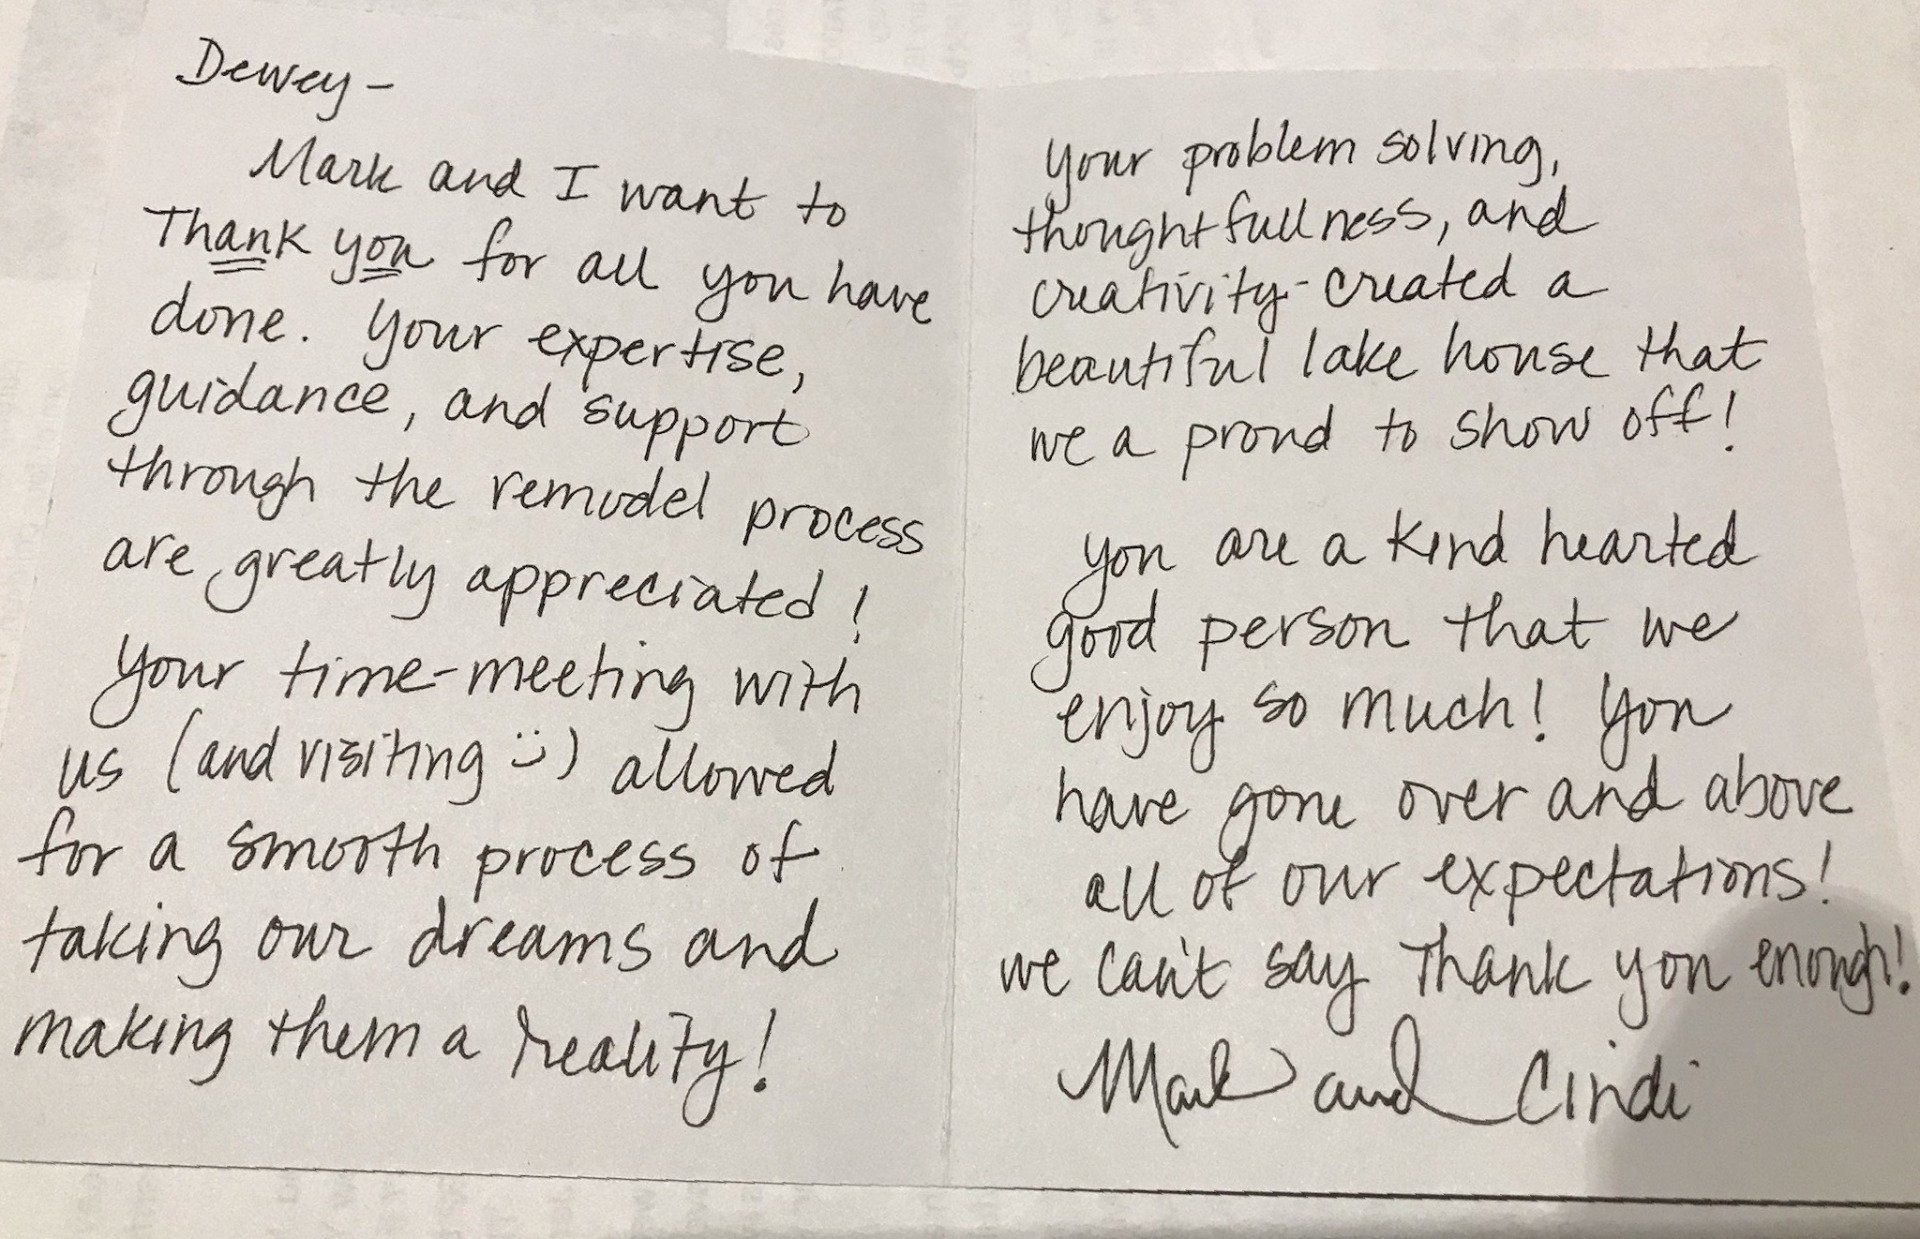 Dewey-
Mark and I want to
Thank you for all you have
done. Your expertise,
guidance, and support
through the remodel process
are greatly appreciated!
Your time-meeting with
us (and visiting ü)) allowed
for a smooth process of
taking our dreams and
making them a reality!
Your problem solving,
thoughtfullness, and
creativity-created a
beautiful lake house that
we a proud to show off!
You are a kind hearted
good person that we
enjoy so much! You
have gone over and above
all of our expectations!
we can't say Thank you enough!
Mark and Cindi